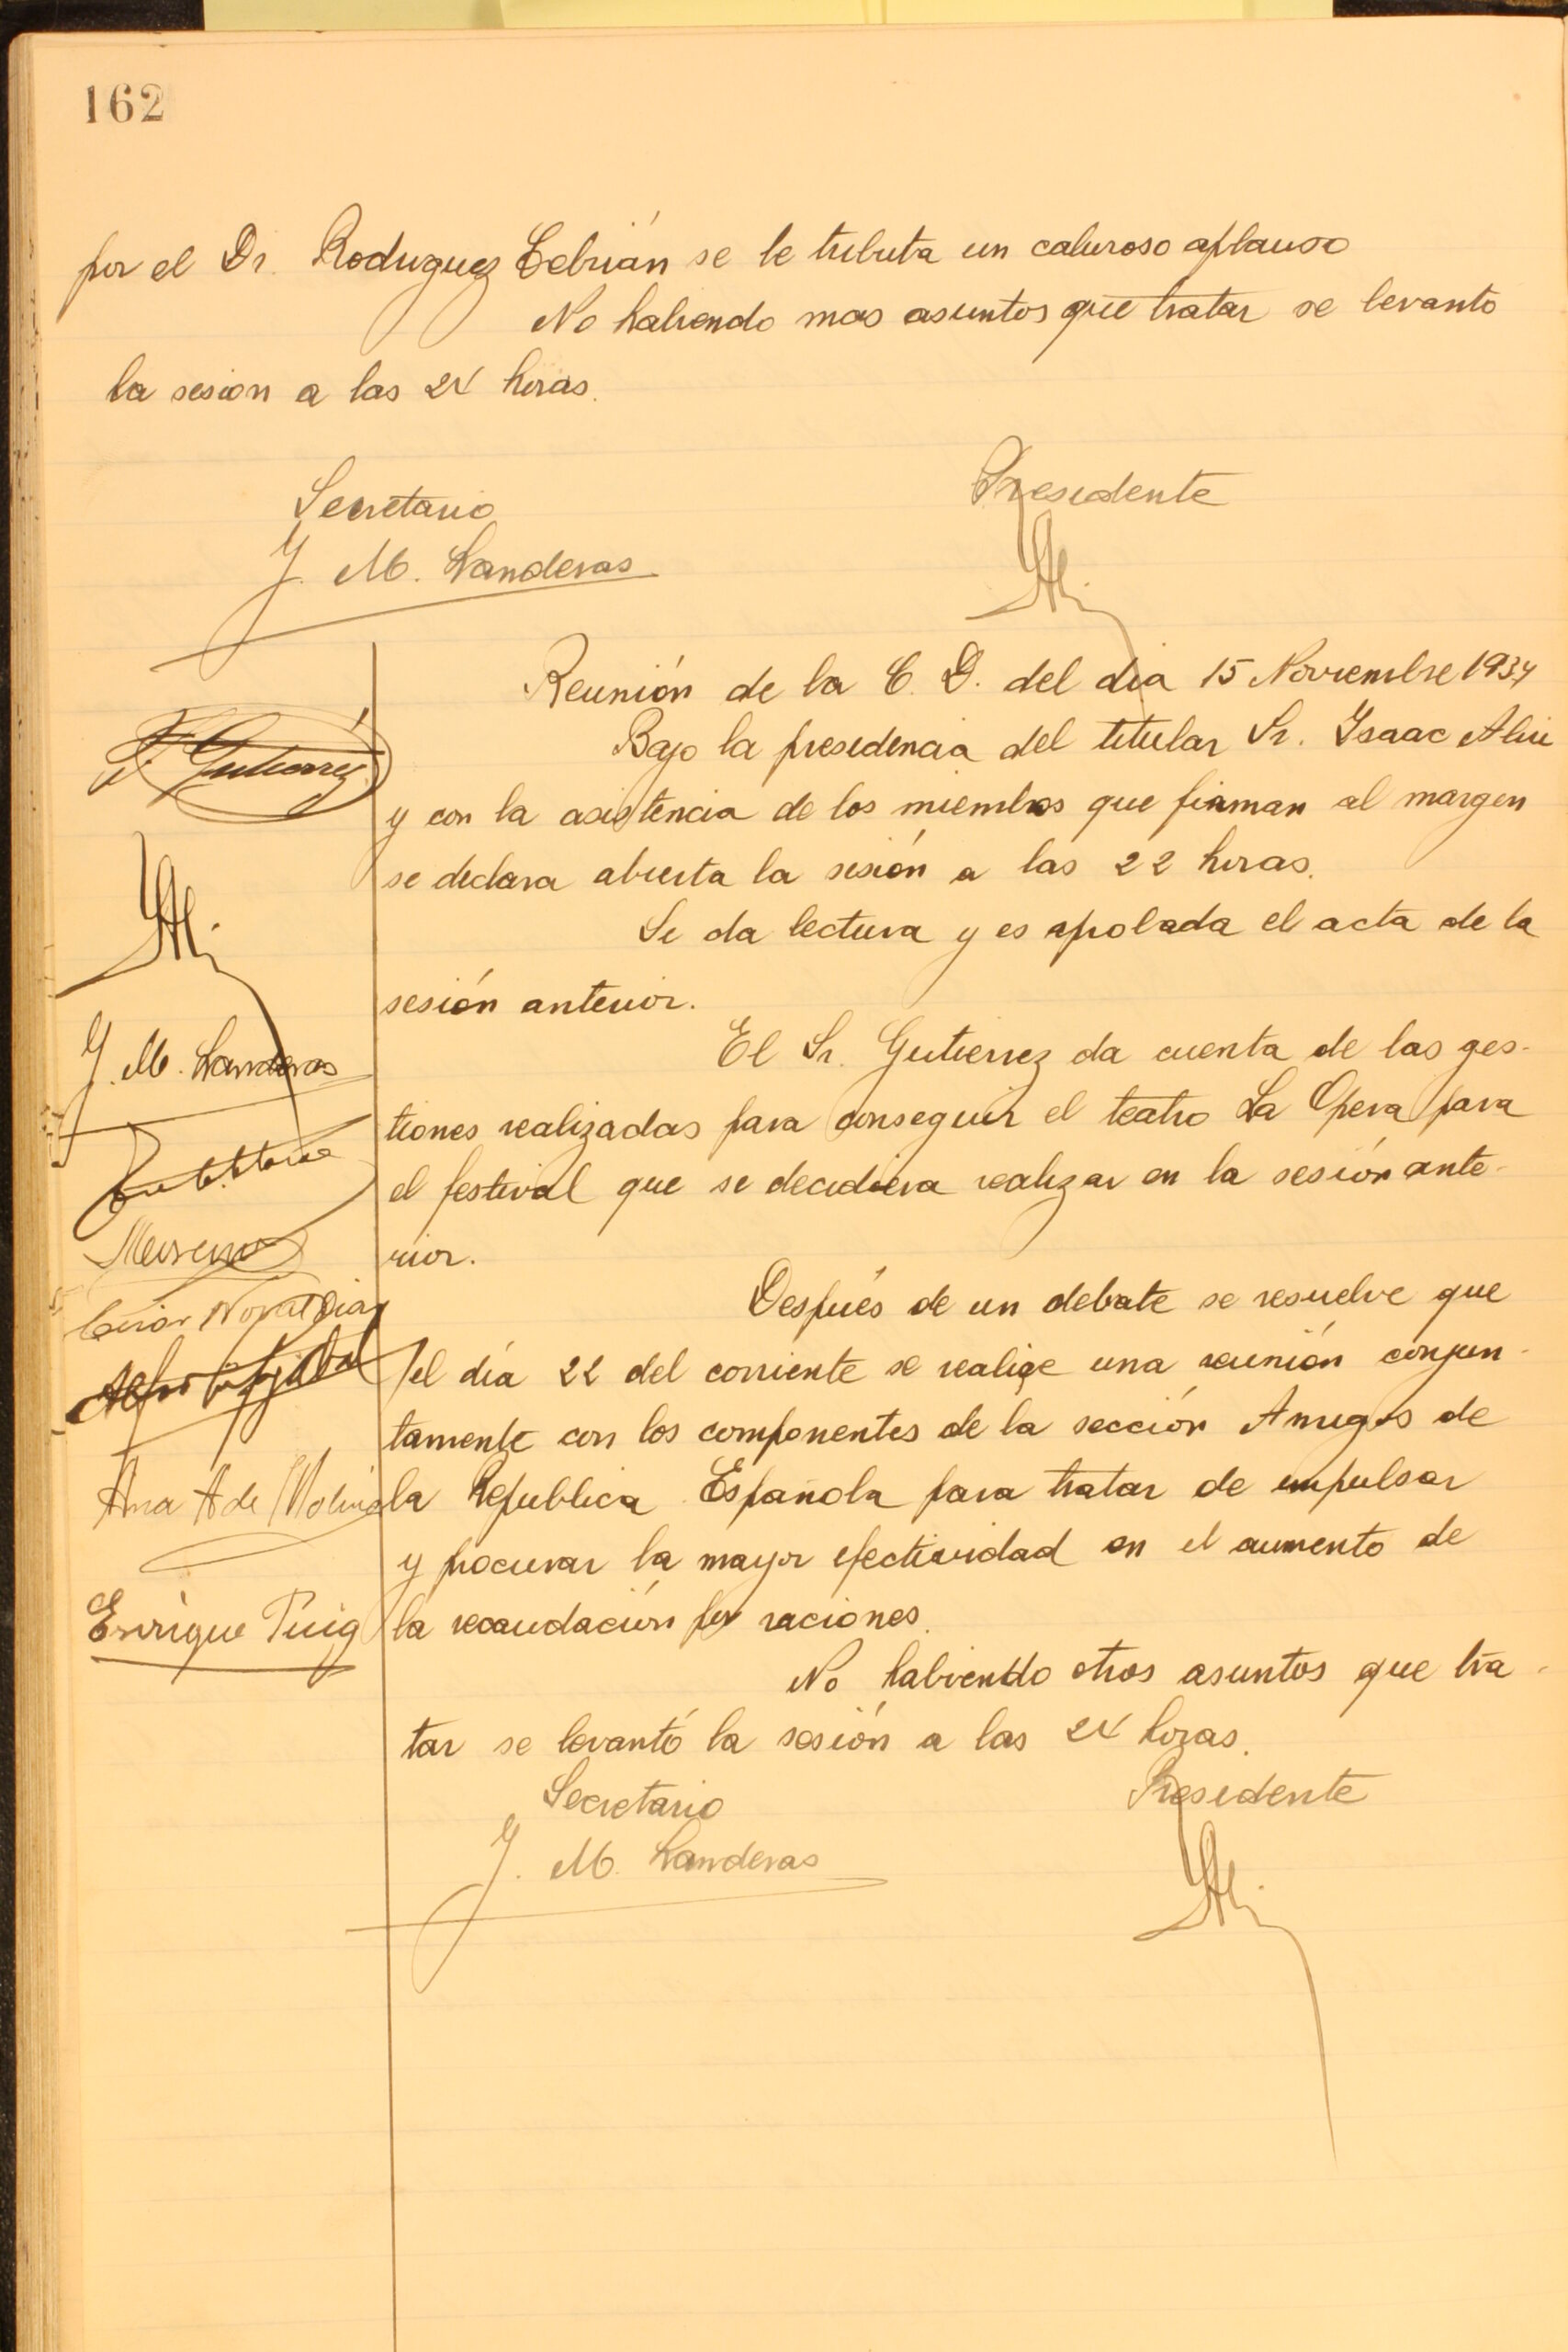 162
por el Dr. Rodriguez Cebrián se le tributa un caluroso aplauso
No habiendo mas asuntos que tratar se levanto
la sesion a las 24 horas.
Secretario
Presidente
J. M. Landeras
Reunión de la C. D. del dia 15 Noviembre 1937
Bajo la presidencia del titular Sr. Isaac
y con la asistencia de los miembros que firman al margen
se declara abierta la sesión a las 22 horas.
Se da lectura y es aprobada el acta de la
sesión anterior.
El Sr. Gutierrez da cuenta de las ges-
tiones realizadas para conseguir el teatro La Opera para
el festival que se decidiera realizar en la sesión ante-
rior.
Después de un debate se resuelve que
el día 22 del corriente se realize una reunión conjun-
tamente con los componentes de la sección Amigos de
la Republica Española para tratar de impulsar
y procurar la mayor efectividad en el aumento de
la recaudación por raciones.
No habiendo otros asuntos que tra-
tar se levantó la sesión a las 24 horas.
Secretario
Presidente
J. M. Landeras
Gutierrez
J. M. Landeras
Moreno
Ana A de Molina
Enrique Puig